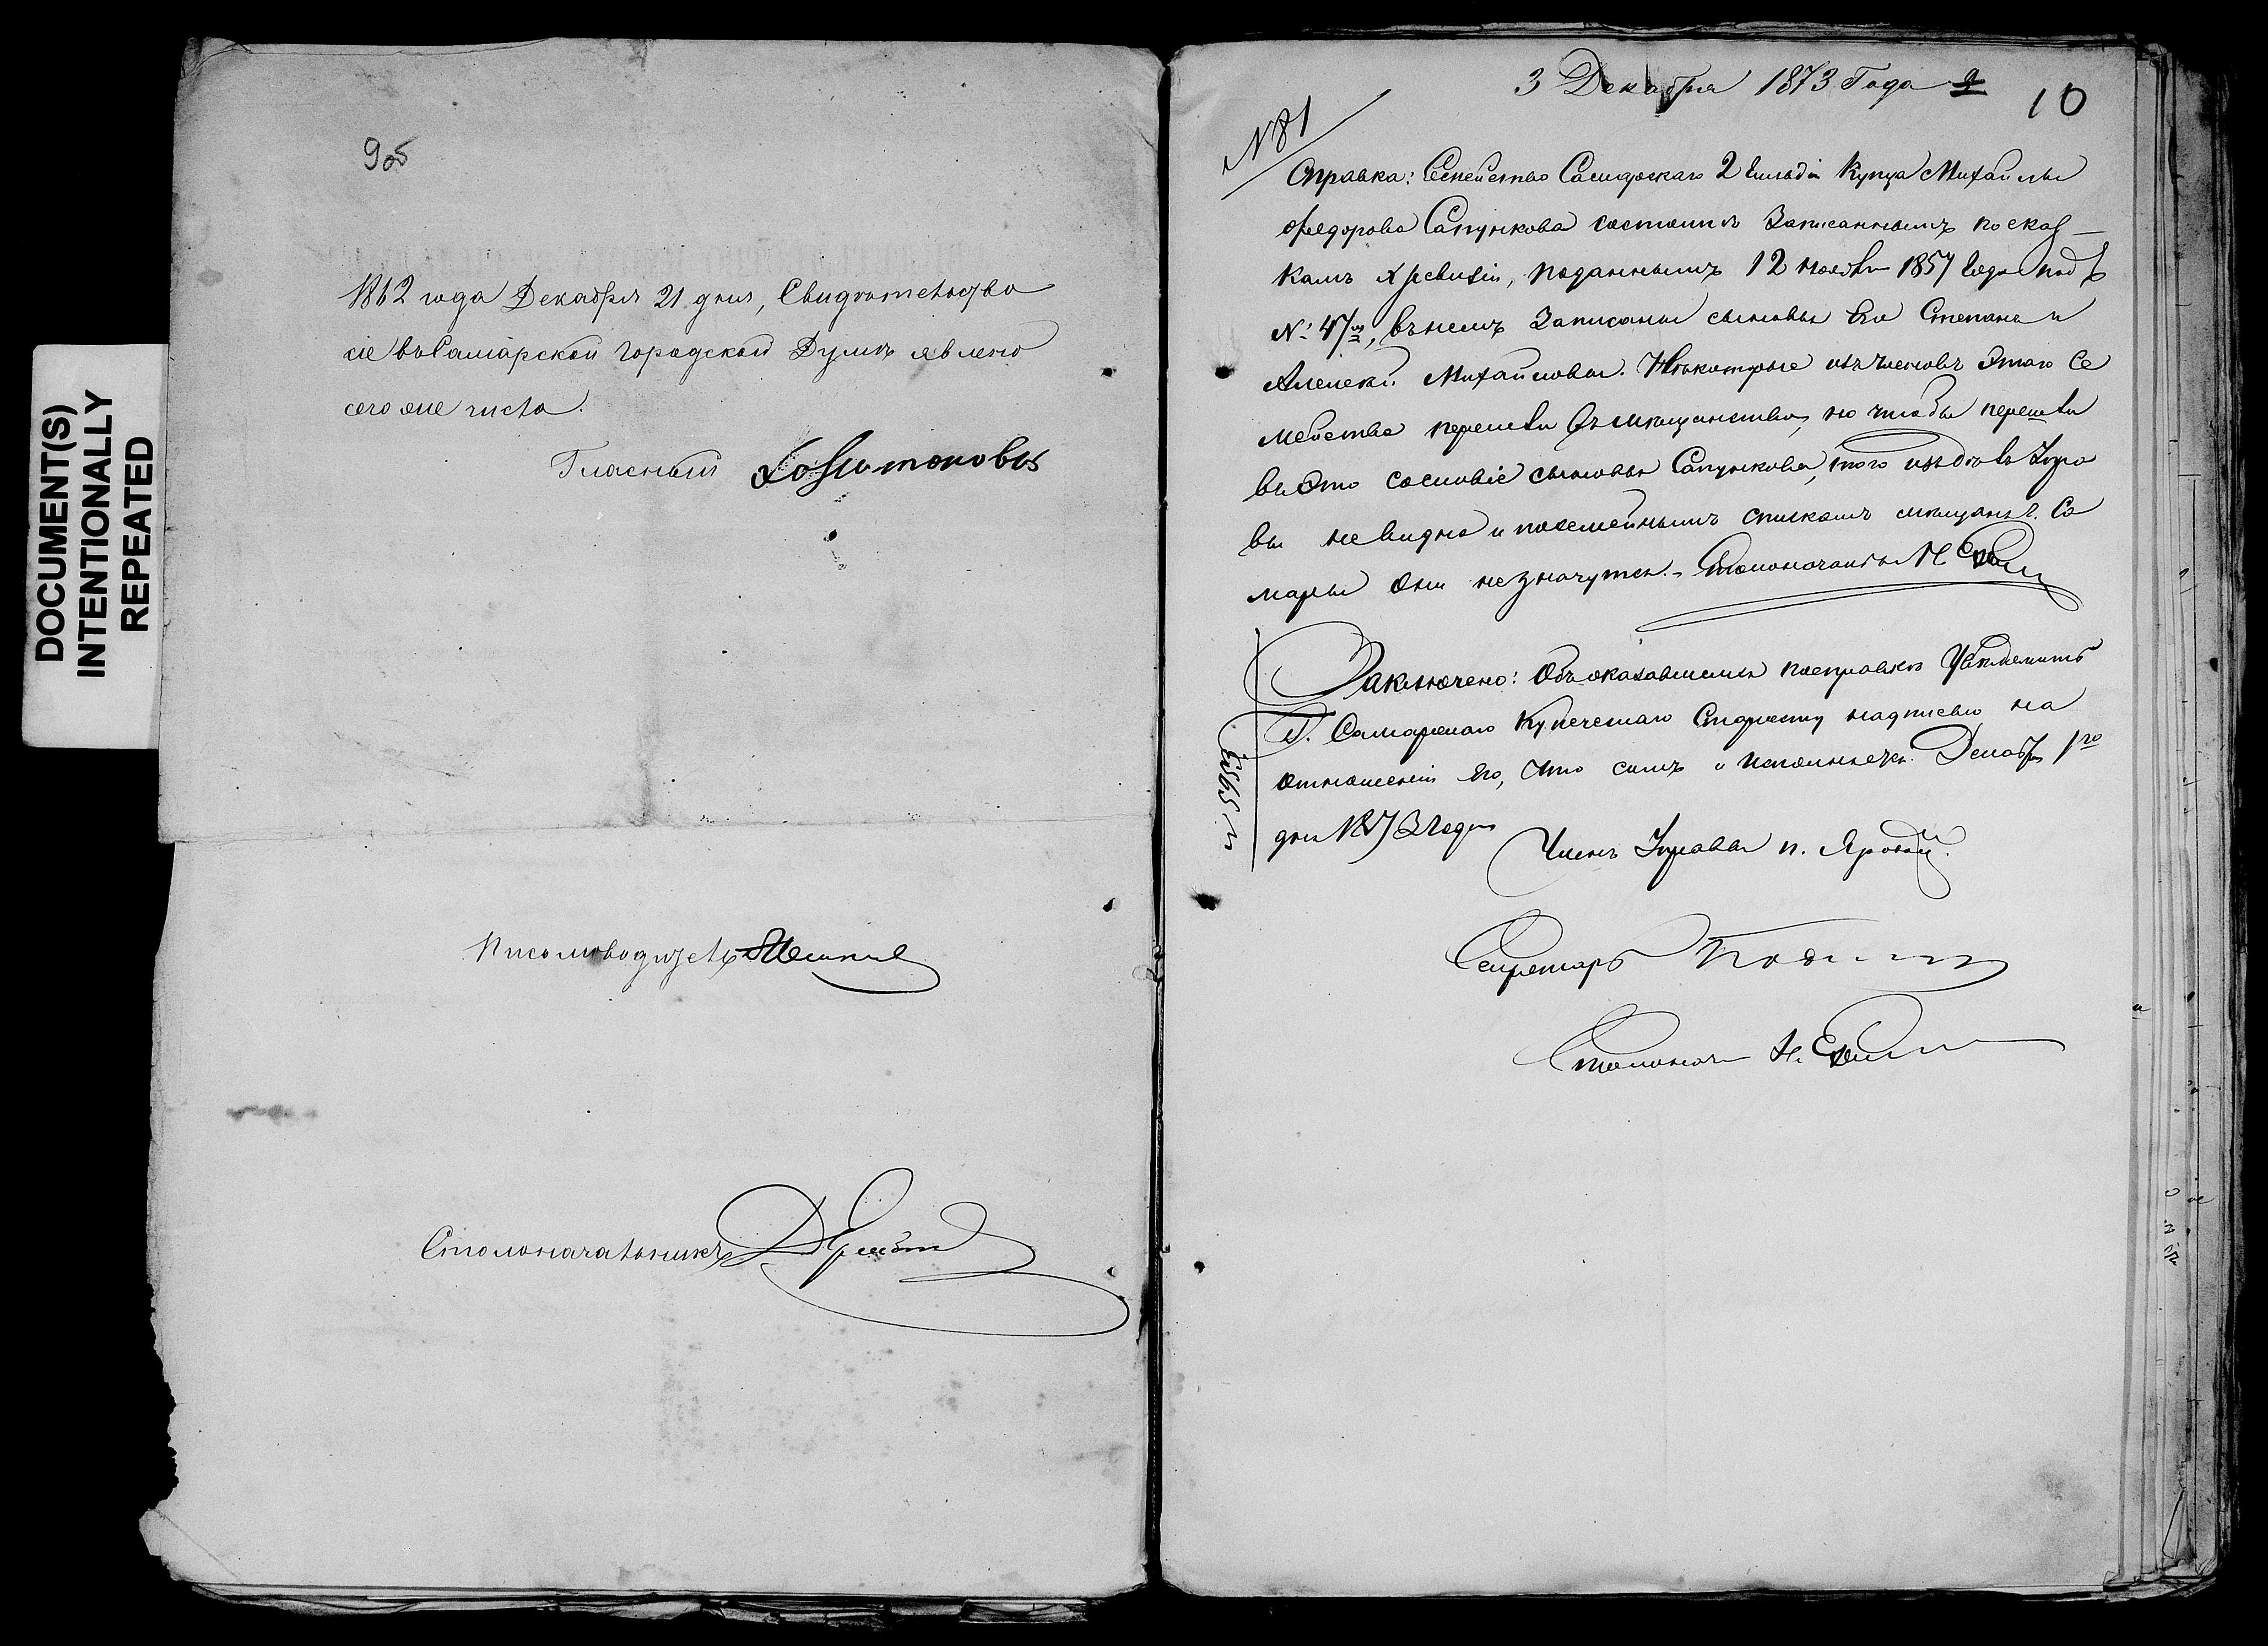 DOCUMENT(S)
INTENTIONALLY
REPEATED
9об
1862 года Декабря 21 дня, Свидетельство
сіе въ Самарской городской Думѣ явлено
сего же числа.
Гласный
Письмоводитель
Столоначальникъ
3 Декабря 1873 Года 9
10
№ 81
Справка: Семейство Самарскаго 2 Гильдіи Купца Михайлы
Федорова Сапункова состоитъ Записаннымъ по сказ-
камъ X ревизіи, поданнымъ 12 ноября 1857 Года подъ
№: 47м, въ немъ Записаны сыновья Его Степанъ и
Алексѣй Михайловы. Нѣкоторые изъ членовъ Этаго Се
мейства перешли въ мѣщанство, но чтобы перешли
въ Это Сословіе сыновья Сапункова, того изъ дѣлъ Упра
вы не видно и посемейнымъ спискамъ мѣщанъ г. Са
мары Они не значутся. - Столоначальн Н
Заключено: Объ оказавшемся по справкѣ Увѣдомить
Г. Самарскаго Купеческаго Старосту надписью на
отношеніи его, Что симъ и исполняется. Декабря 1го
дня 1873 Года
Членъ Управы п. Яровой.
Секретарь
Столонач Н.